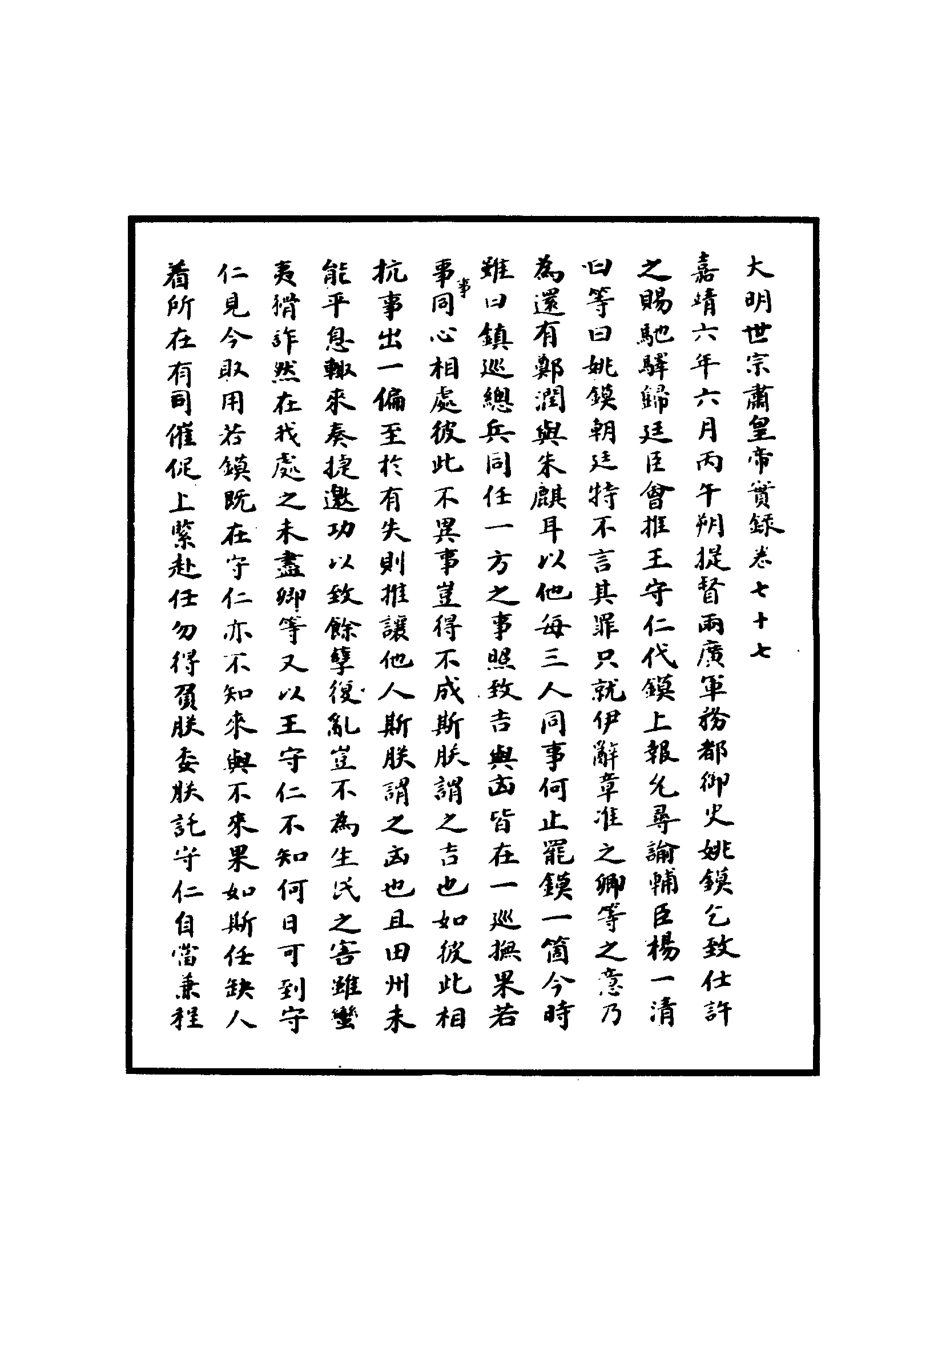 大明世宗肅皇帝實録卷七十七
嘉靖六年六月丙午朔提督兩廣軍務都御史姚鏌乞致仕許
之賜馳驛歸廷臣會推王守仁代鏌上報允尋諭輔臣楊一清
曰等曰姚鏌朝廷特不言其罪只就伊辭章准之卿等之意乃
為還有鄭潤與朱麒耳以他每三人同事何止罷鏌一箇今時
雖曰鎮巡總兵同任一方之事照致吉與凶皆在一巡撫果若
事事同心相處彼此不異事豈得不成斯朕謂之吉也如彼此相
抗事出一偏至於有失則推讓他人斯朕謂之凶也且田州未
能平息輙來奏捷邀功以致餘孽復亂豈不為生民之害雖蠻
夷猾詐然在我處之未盡卿等又以王守仁不知何日可到守
仁見今取用若鏌既在守仁亦不知來與不來果如斯任缺人
着所在有司催促上緊赴任勿得負朕委朕託守仁自當兼程